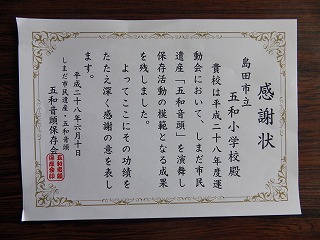 感謝状
島田市立
五和小学校殿
貴校は平成二十八年度運
動会において、しまだ市民
遺産「五和音頭」を演舞し
保存活動の模範となる成果
を残しました。
よってここにその功績を
たたえ深く感謝の意を表し
ます。
平成二十八年六月十日
しまだ市民遺産・五和音頭
五和音頭保存会
五和音頭
保存会印